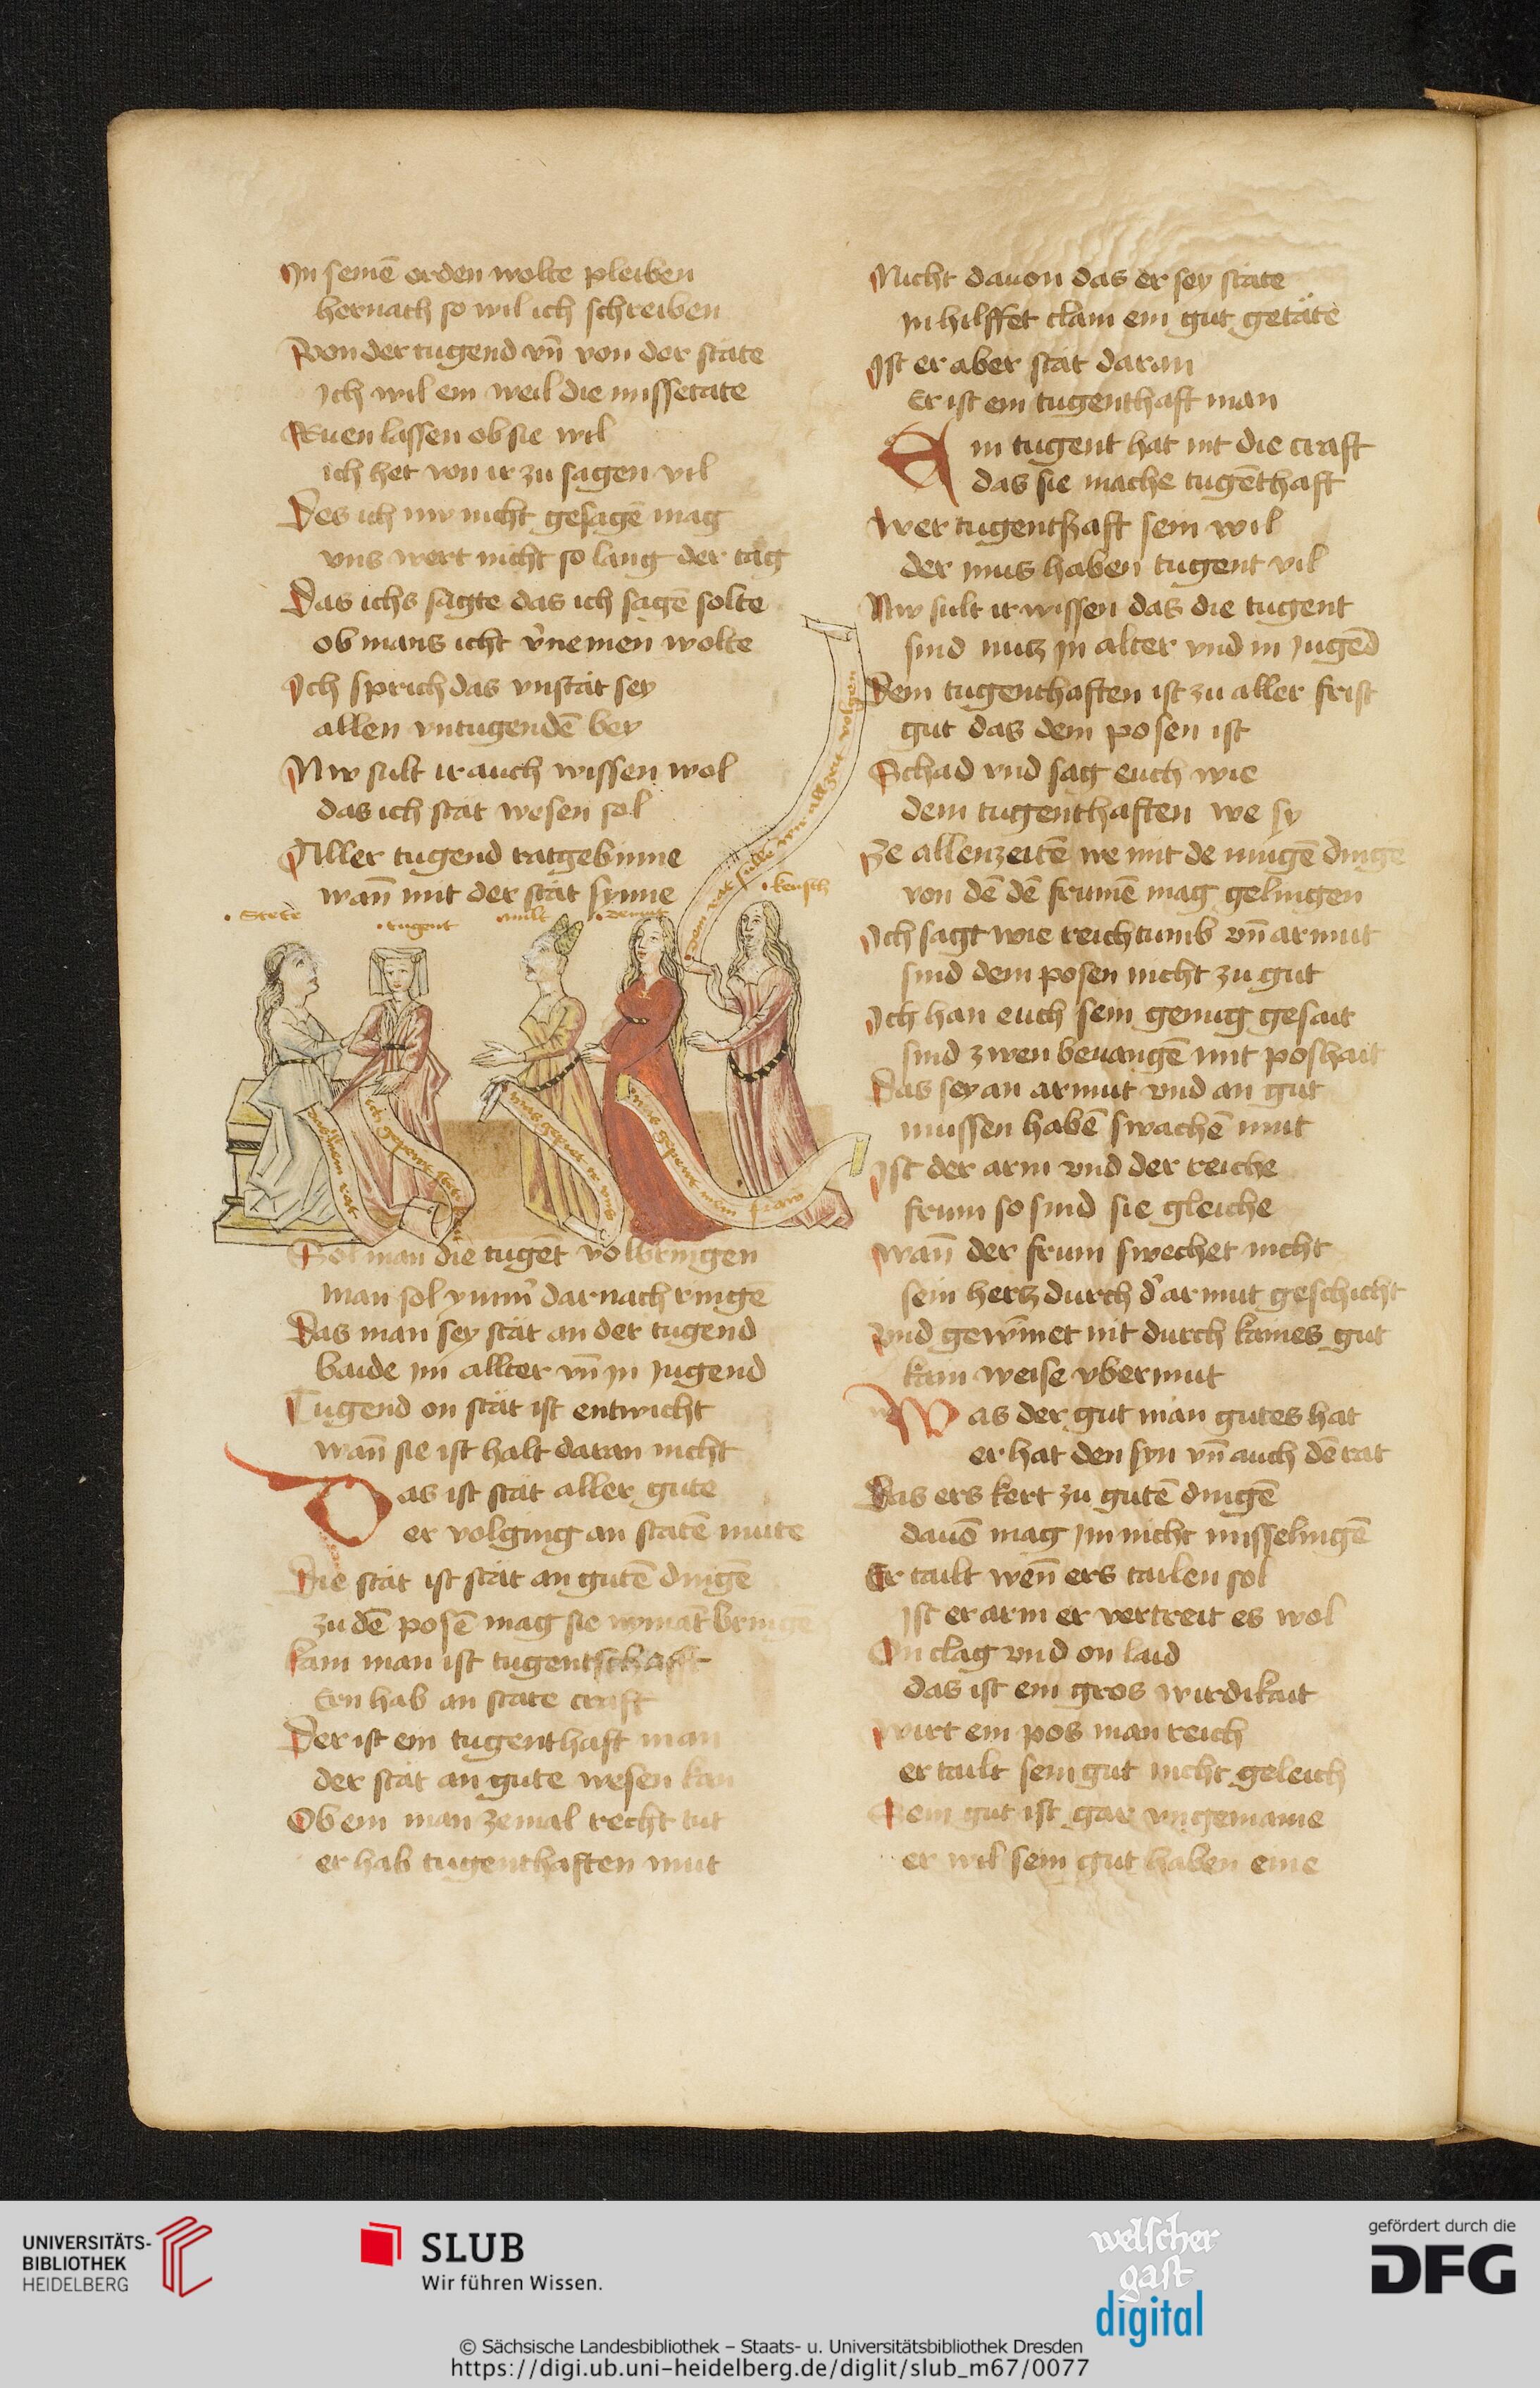 In seinē orden wolte pleiben
hernach so wil ich schreiben
Von der tugend vn̄ von der stäte
Ich wil ein weil die missetate
Ruen lassen ob sie wil
ich het von ir zu sagen vil
Des ich nw nicht gesagē mag
vns wert nicht so lang der tag
Das ichs sagte das ich sagē solte
ob mans icht v̄nemen wolte
Ich sprich das vnstät sey
allen vntugendē bey
Nw sult ir auch wissen wol
das ich stät wesen sol
Aller tugend ratgebinne
wan̄ mit der stät synne
· Stete
· tugent
· milt
· demut
· keusch
dem rat sulle wir allzeit volgen
das ist mein rat
ich gepeut
was gepeut ir vns
was gepeut mein fraw
Sol man die tugēt volbringen
man sol ymm̄ darnach ringē
Das man sey stät an der tugend
baide im allter vn̄ in Jugend
Tugend on stät ist entwicht
wan̄ sie ist halt daran nicht
Das ist stät aller gute
er volging an statē mute
Die stät ist stät an gutē dingē
zu dē posē mag sie nymāt bringē
kain man ist tugentschafft
Ern hab an state craft
Der ist ein tugenthaft man
der stät an gute wesen kan
Ob ein man zemal recht tut
er hab tugenthaften mut
Nicht dauon das er sey stäte
in hilffet clain ein gut getäte
Ist er aber stät daran
Er ist ein tugenthaft man
Ain tugent hat nit die craft
das sie mache tugēthaft
Wer tugenthaft sein wil
der mus haben tugent vil
Nw sult ir wissen das die tugent
sind nutz in alter vnd in Jugēd
Dem tugenthaften ist zu aller frist
gut das dem posen ist
Schad vnd sag euch wie
dem tugenthaften we sy
Ze allenzeitē we mit de ningē dinge
von dē dē frumē mag gelingen
Ich sagt wie reichtumb vn̄ armut
sind dem posen nicht zu gut
Ich han euch sein genug gesait
sind zwen beuangē mit poshait
Das sey an armut vnd an gut
mussen habē swachē mut
Ist der arm vnd der reiche
frum so sind sie gleiche
wan̄ der frum swechet nicht
sein hertz durch d̄ armut geschicht
vnd gewīnet nit durch kaines gut
kain weise vbermut
Was der gut man gutes hat
er hat den syn vn̄ auch dē rat
Das ers kert zu gutē dingē
dauō mag im nicht misselingē
Er tailt wen̄ ers tailen sol
Ist er arm er vertreit es wol
On clag vnd on laid
das ist ein gros wirdikait
wirt ein pos man reich
er tailt sein gut nicht geleich
Sein gut ist gar vngemaine
er wil sein gut haben eine
UNIVERSITÄTS-
BIBLIOTHEK
HEIDELBERG
SLUB
Wir führen Wissen.
welscher
gast
digital
gefördert durch die
DFG
© Sächsische Landesbibliothek – Staats- u. Universitätsbibliothek Dresden
https://digi.ub.uni-heidelberg.de/diglit/slub_m67/0077